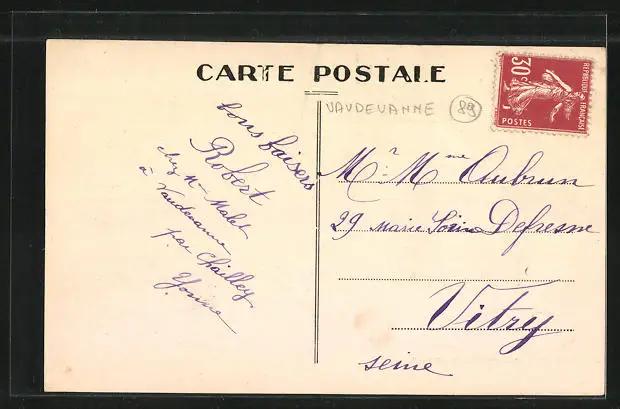 CARTE POSTALE
VAUDEVANNE 89
RÉPUBLIQUE FRANÇAISE
30c
POSTES
bons baisers
Robert
chez Mme Malet
à Vaudevanne
par Chailley
Yonne
Mr Mme Aubrun
29 Marie Defresne
Vitry
seine